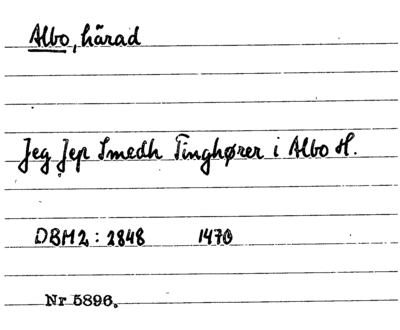 Albo, härad
Jeg Jep Smedh Tinghører i Albo H.
DBH2: 2848 1470
Nr 5896.